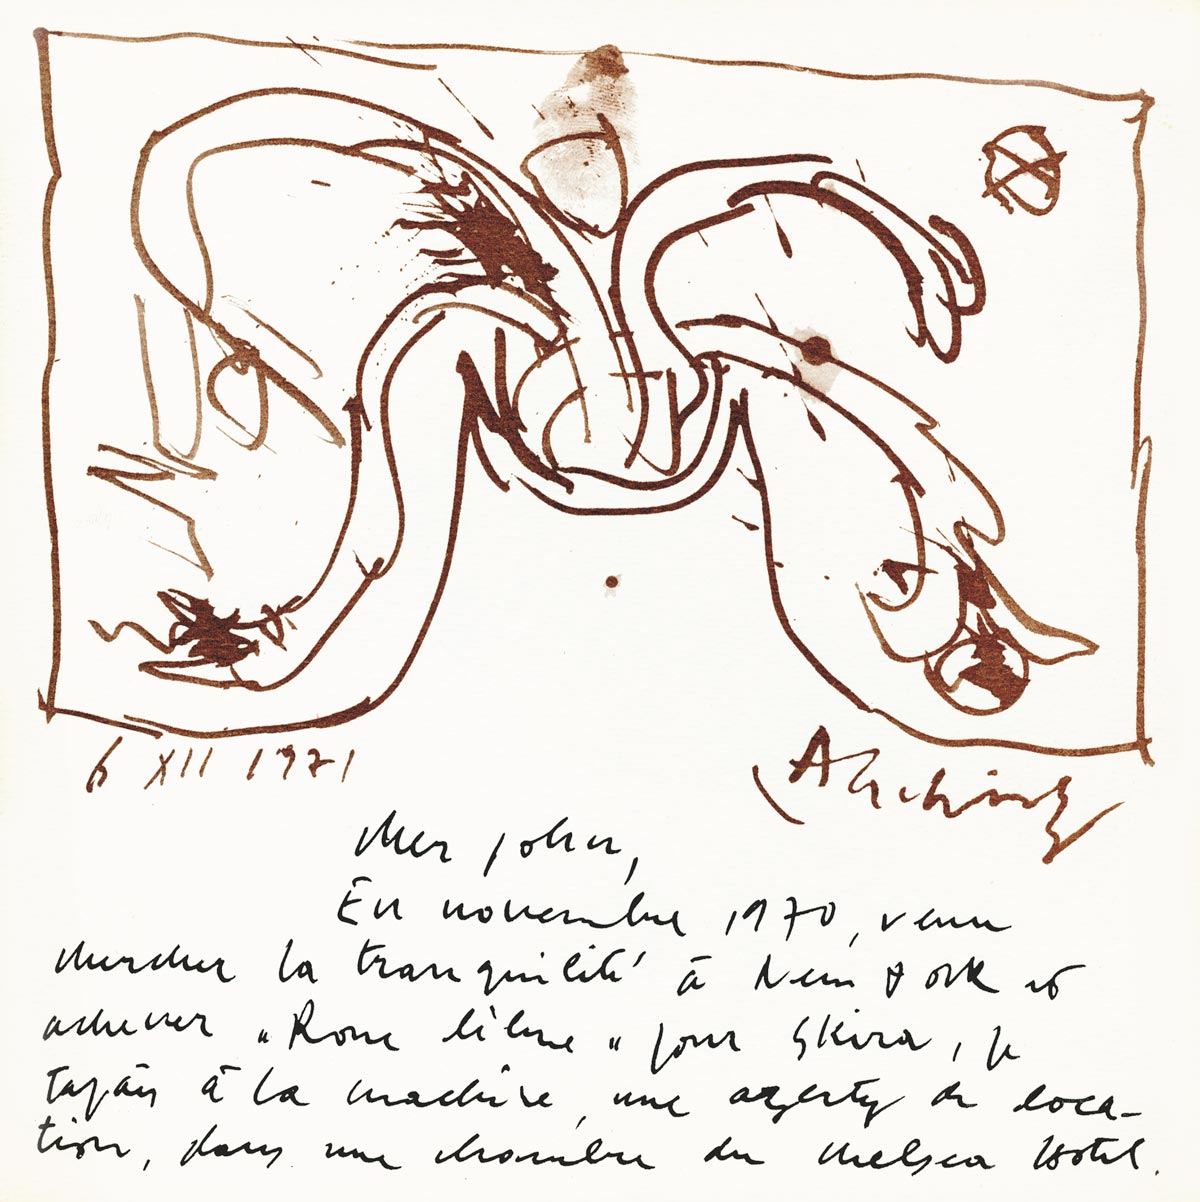 6 XII 1971
Alechinsky
Cher John,
En novembre 1970, venu
chercher la tranquilité à New York et
achever "Roue libre" pour Skira, je
tapais à la machine, une azerty de loca-
tion, dans une chambre du Chelsea Hotel.